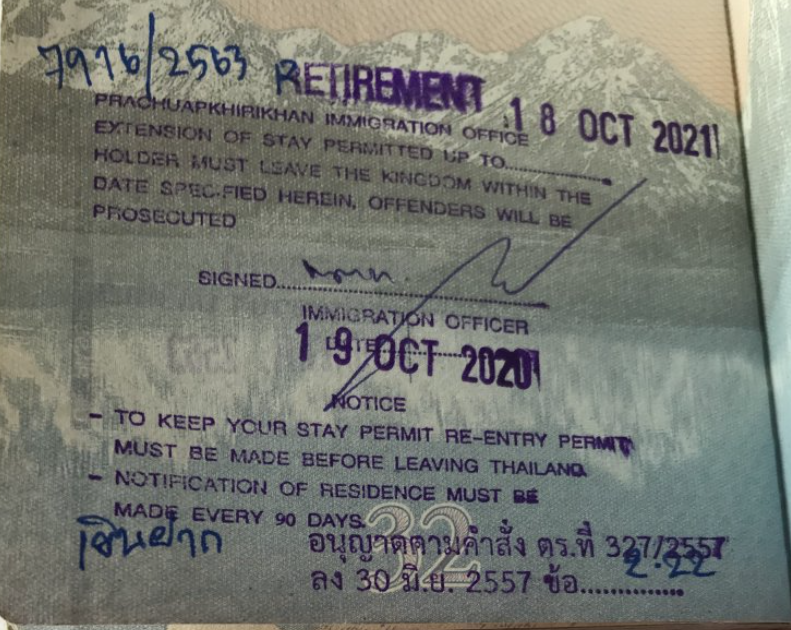 7976/2563 RETIREMENT
PRACHUAPKHIRIKHAN IMMIGRATION OFFICE 18 OCT 2021
EXTENSION OF STAY PERMITTED UP TO..............
HOLDER MUST LEAVE THE KINGDOM WITHIN THE
DATE SPECIFIED HEREIN, OFFENDERS WILL BE
PROSECUTED
SIGNED..............................
IMMIGRATION OFFICER
DATE 19 OCT 2020
NOTICE
- TO KEEP YOUR STAY PERMIT RE-ENTRY PERMIT
MUST BE MADE BEFORE LEAVING THAILAND
- NOTIFICATION OF RESIDENCE MUST BE
MADE EVERY 90 DAYS.
32
เงินฝาก อนุญาตตามคำสั่ง ตร.ที่ 327/2557
ลง 30 มิ.ย. 2557 ข้อ 2.22